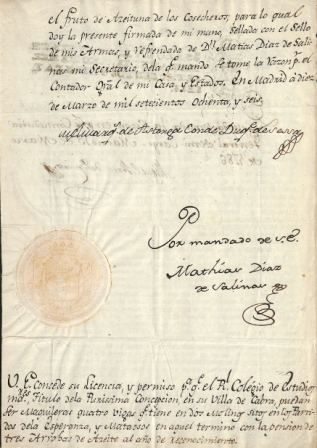 el fruto de Azeituna de los Cosecheros; para lo qual
doy la presente firmada de mi mano, Sellada con el Sello
de mis Armas, y refrendada de Dn. Matias Diaz de Sali-
nas mi Secretario, de la q. mando se tome la razon pr. el
Contador Gral de mi Casa, y Estados. En Madrid a diez
de Marzo de mil setecientos ochenta, y seis.
El Marqs. de Astorga Conde Duqe. de Sessa
Por mandado de S.E.
Mathias Diaz
de Salinas
V.E. Concede su Licencia, y permiso pa. q. el Rl. Colegio de Estudios
Titulo de la Purissima Concepcion, en su Villa de Cabra, puedan
ser Maquileras quatro vigas q. tiene en dos Molinos sitos en los Parti-
dos de la Esperanza, y Matacos en aquel termino con la pension de
tres Arrobas de Azeite al año de reconocimiento.